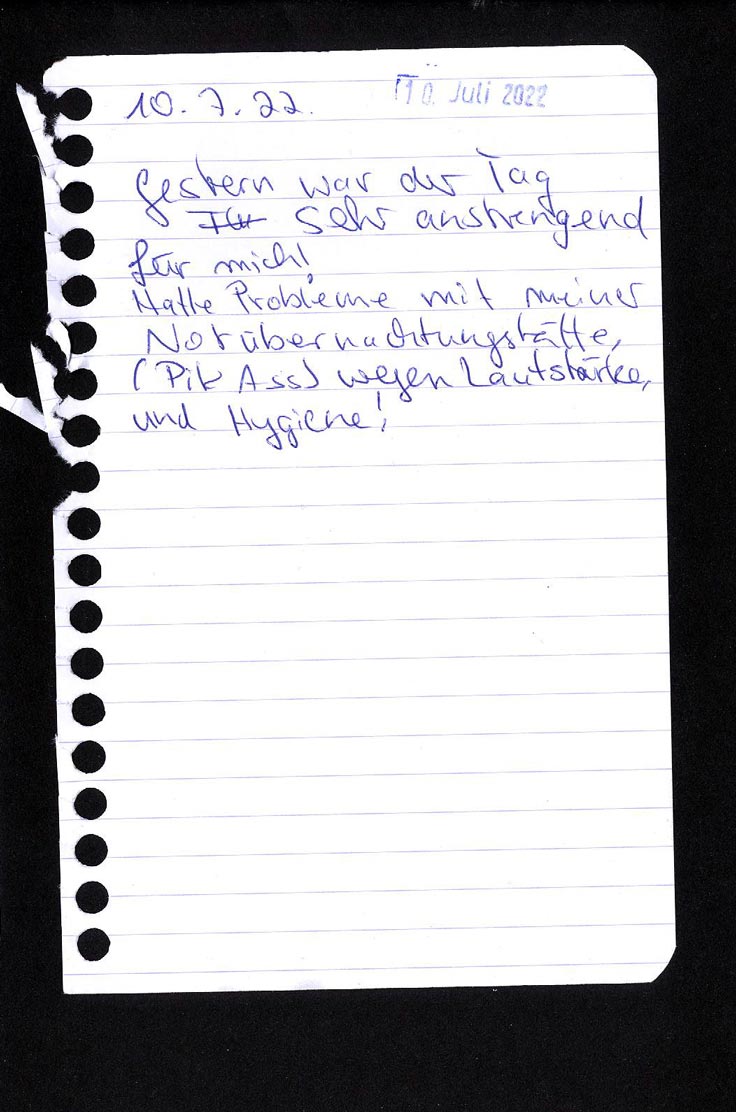 10.7.22.
10. Juli 2022
Gestern war der Tag
sehr anstrengend
für mich!
Hatte Probleme mit meiner
Notübernachtungstätte,
(Pik Ass) wegen Lautstärke,
und Hygiene!